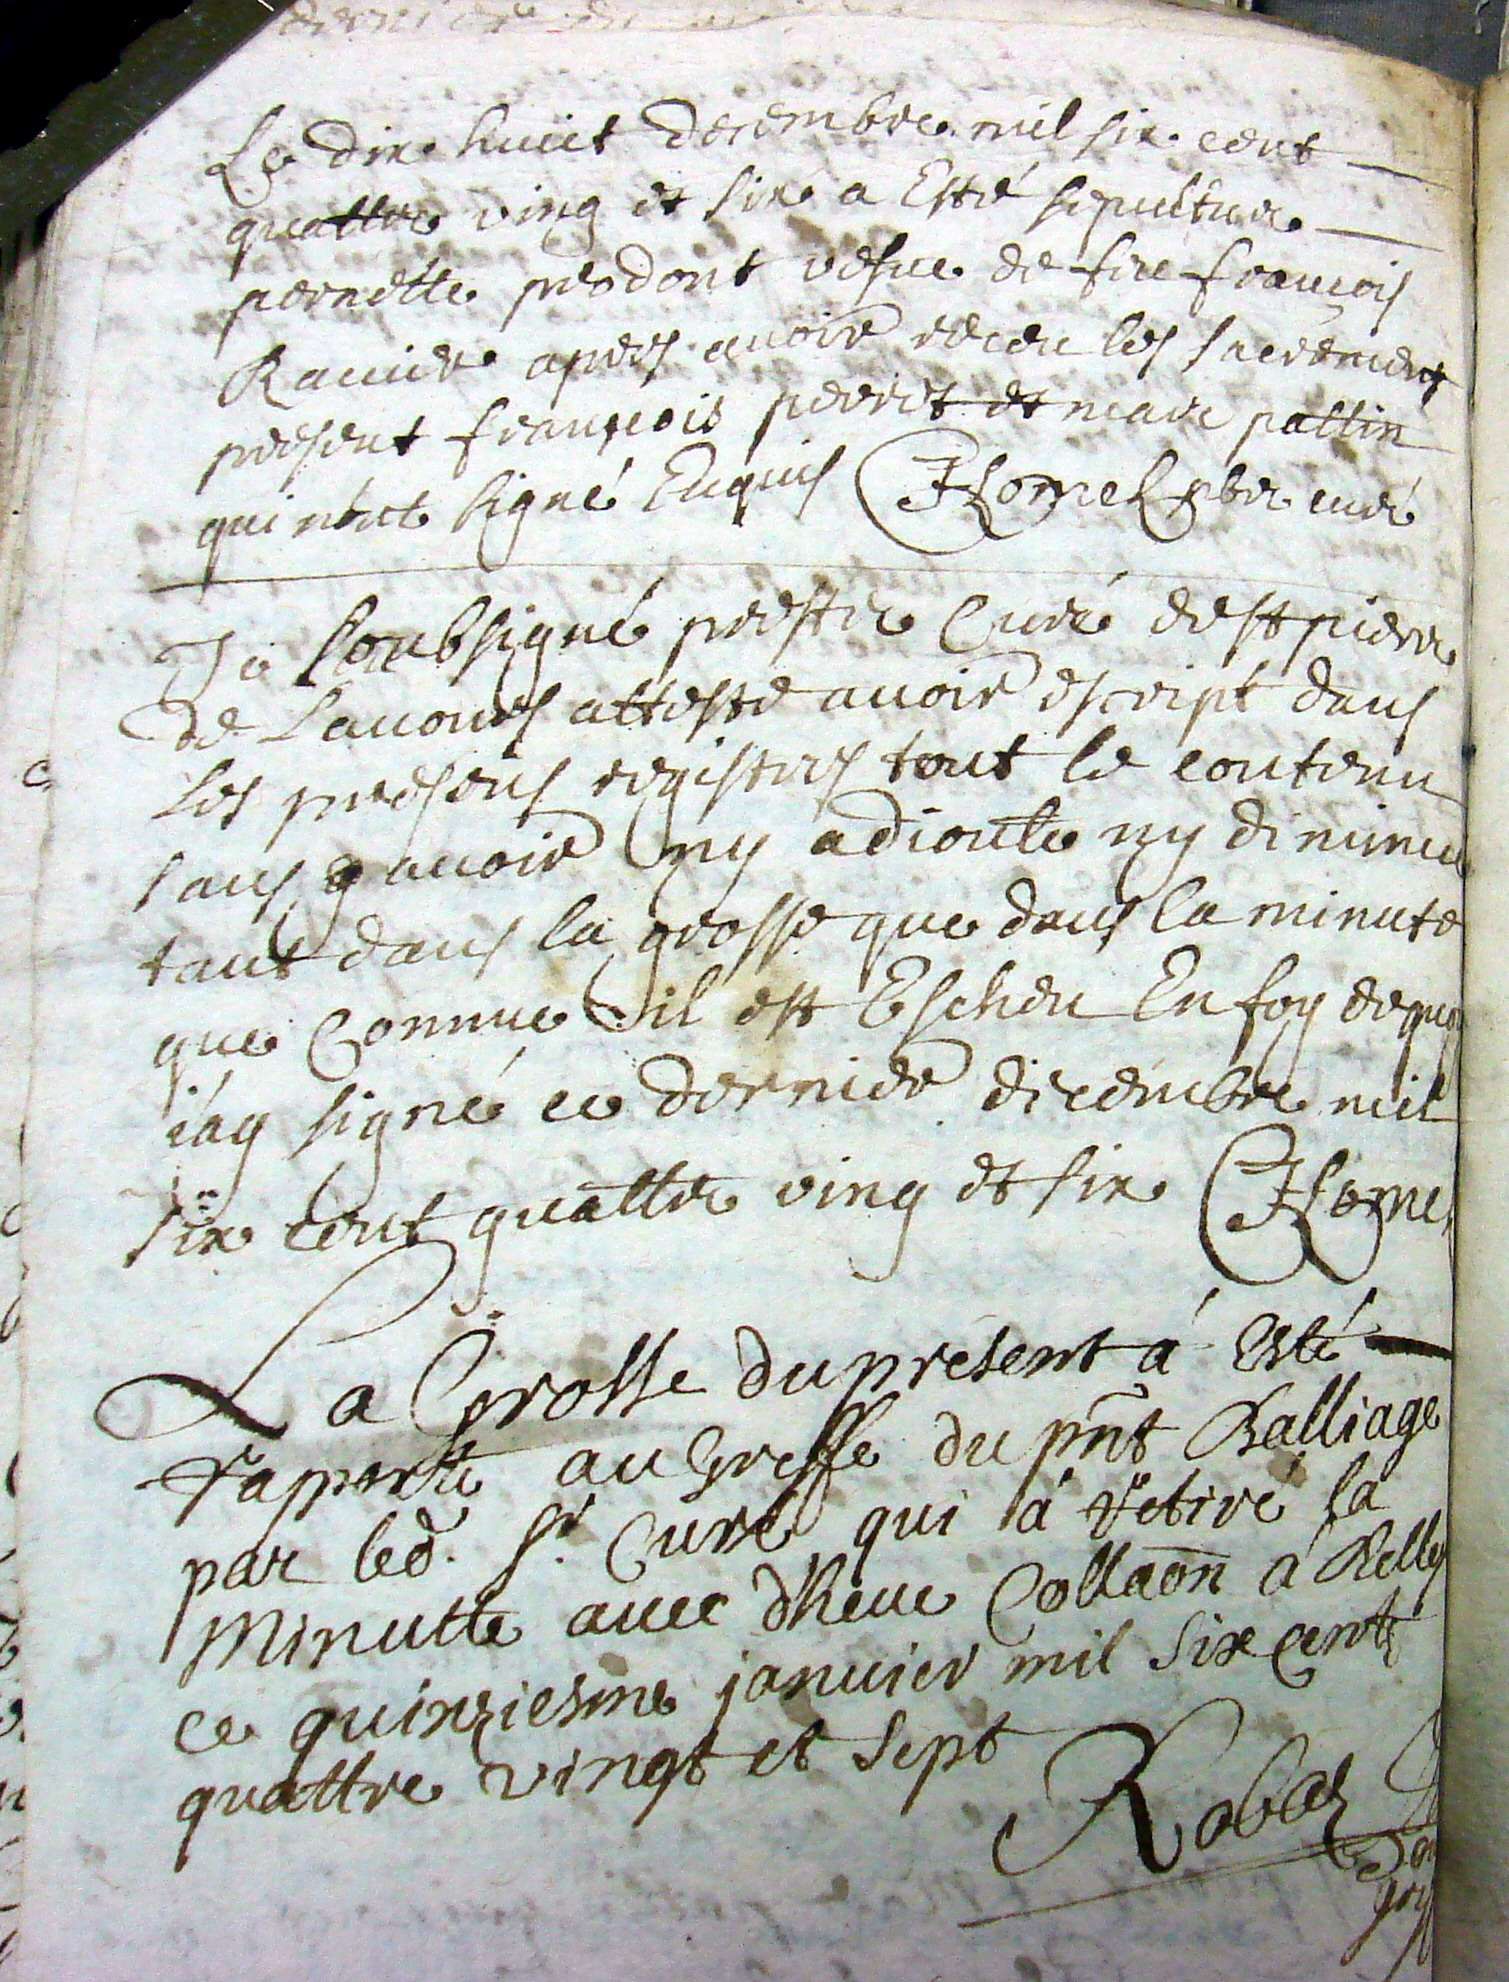 Le dix huict decembre mil six cent
quattre ving et six a Esté sepulture
pernette prodont vefue de feu françois
Rauier apres auoir receu les sacrements
present françois perret et marc pattin
qui n'ont signé Enquis Homel pbr curé
Je soubsigné prestre Curé de st pierre
de Lauours atteste auoir escript dans
les presens registres tout le contenu
sans y auoir ny adioute ny diminue
tant dans la grosse que dans la minute
que Comme il est Escheu En foy de quoy
i'ay signé ce dernier decembre mil
six cent quattre ving et six Homel
La Grosse du présent á Esté
rapporté au Greffe du pnt Balliage
par led. Sr. Curé qui á retiré la
Minutte auec dheue Collaon á Belley
ce quinziesme januier mil six cents
quattre vingt et sept